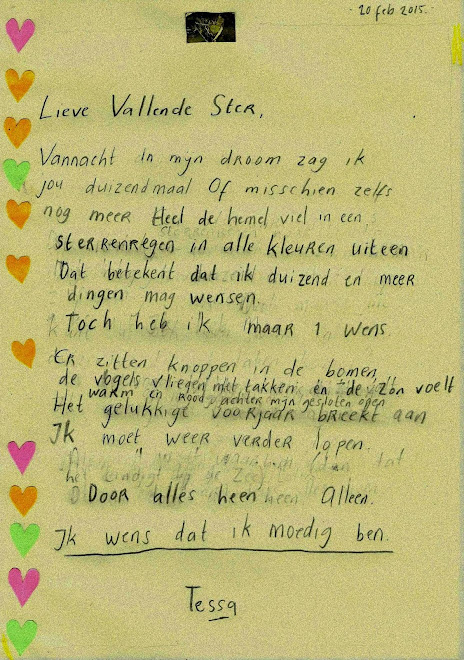 20 feb 2015.
Lieve Vallende Ster,
Vannacht In mijn droom zag ik
jou duizendmaal Of misschien zelfs
nog meer Heel de hemel viel in een
sterrenregen in alle kleuren uiteen
Dat betekent dat ik duizend en meer
dingen mag wensen.
Toch heb ik maar 1 wens.
Er zitten knoppen in de bomen,
de vogels vliegen met takken en de zon voelt
warm en rood achter mijn gesloten ogen
Het gelukkige voorjaar breekt aan
Ik moet weer verder lopen.
Door alles heen Alleen.
Ik wens dat ik moedig ben.
Tessa